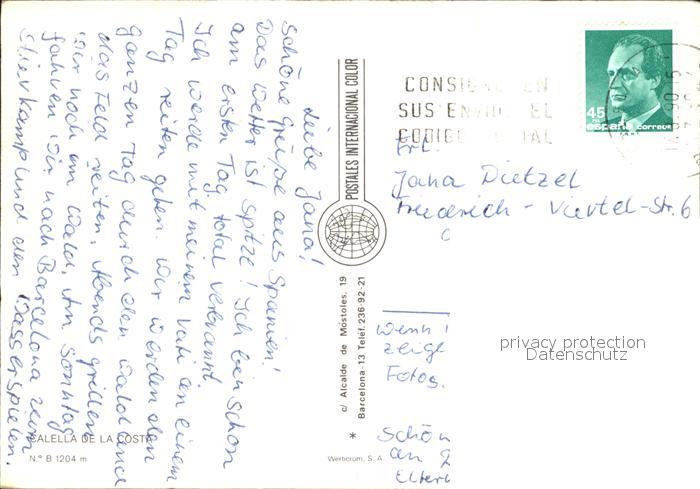 Liebe Jana!
Schöne Grüße aus Spanien!
Das Wetter ist Spitze! Ich bin schon
am ersten Tag total verbrannt.
Ich werde mit meinem Vati an einem
Tag reiten gehen. Wir werden den
ganzen Tag durch den Wald und
das Feld reiten. Abends grillen
wir noch im Wald. Am Sonntag
fahren wir nach Barcelona zum
Stierkampf und den Wasserspielen.
CALELLA DE LA COSTA
N.° B 1204 m
POSTALES INTERNACIONAL COLOR
c/ Alcalde de Móstoles, 19
Barcelona-13 Teléf. 236-92-21
*
Werticrom, S. A.
CONSIGNE EN
SUS ENVIOS EL
CODIGO POSTAL
45
españa correos
Frl.
Jana Dietzel
Friederich-Viertel-Str. 6
wenn
zeige
Fotos.
Schön
an
Eltern
privacy protection
Datenschutz